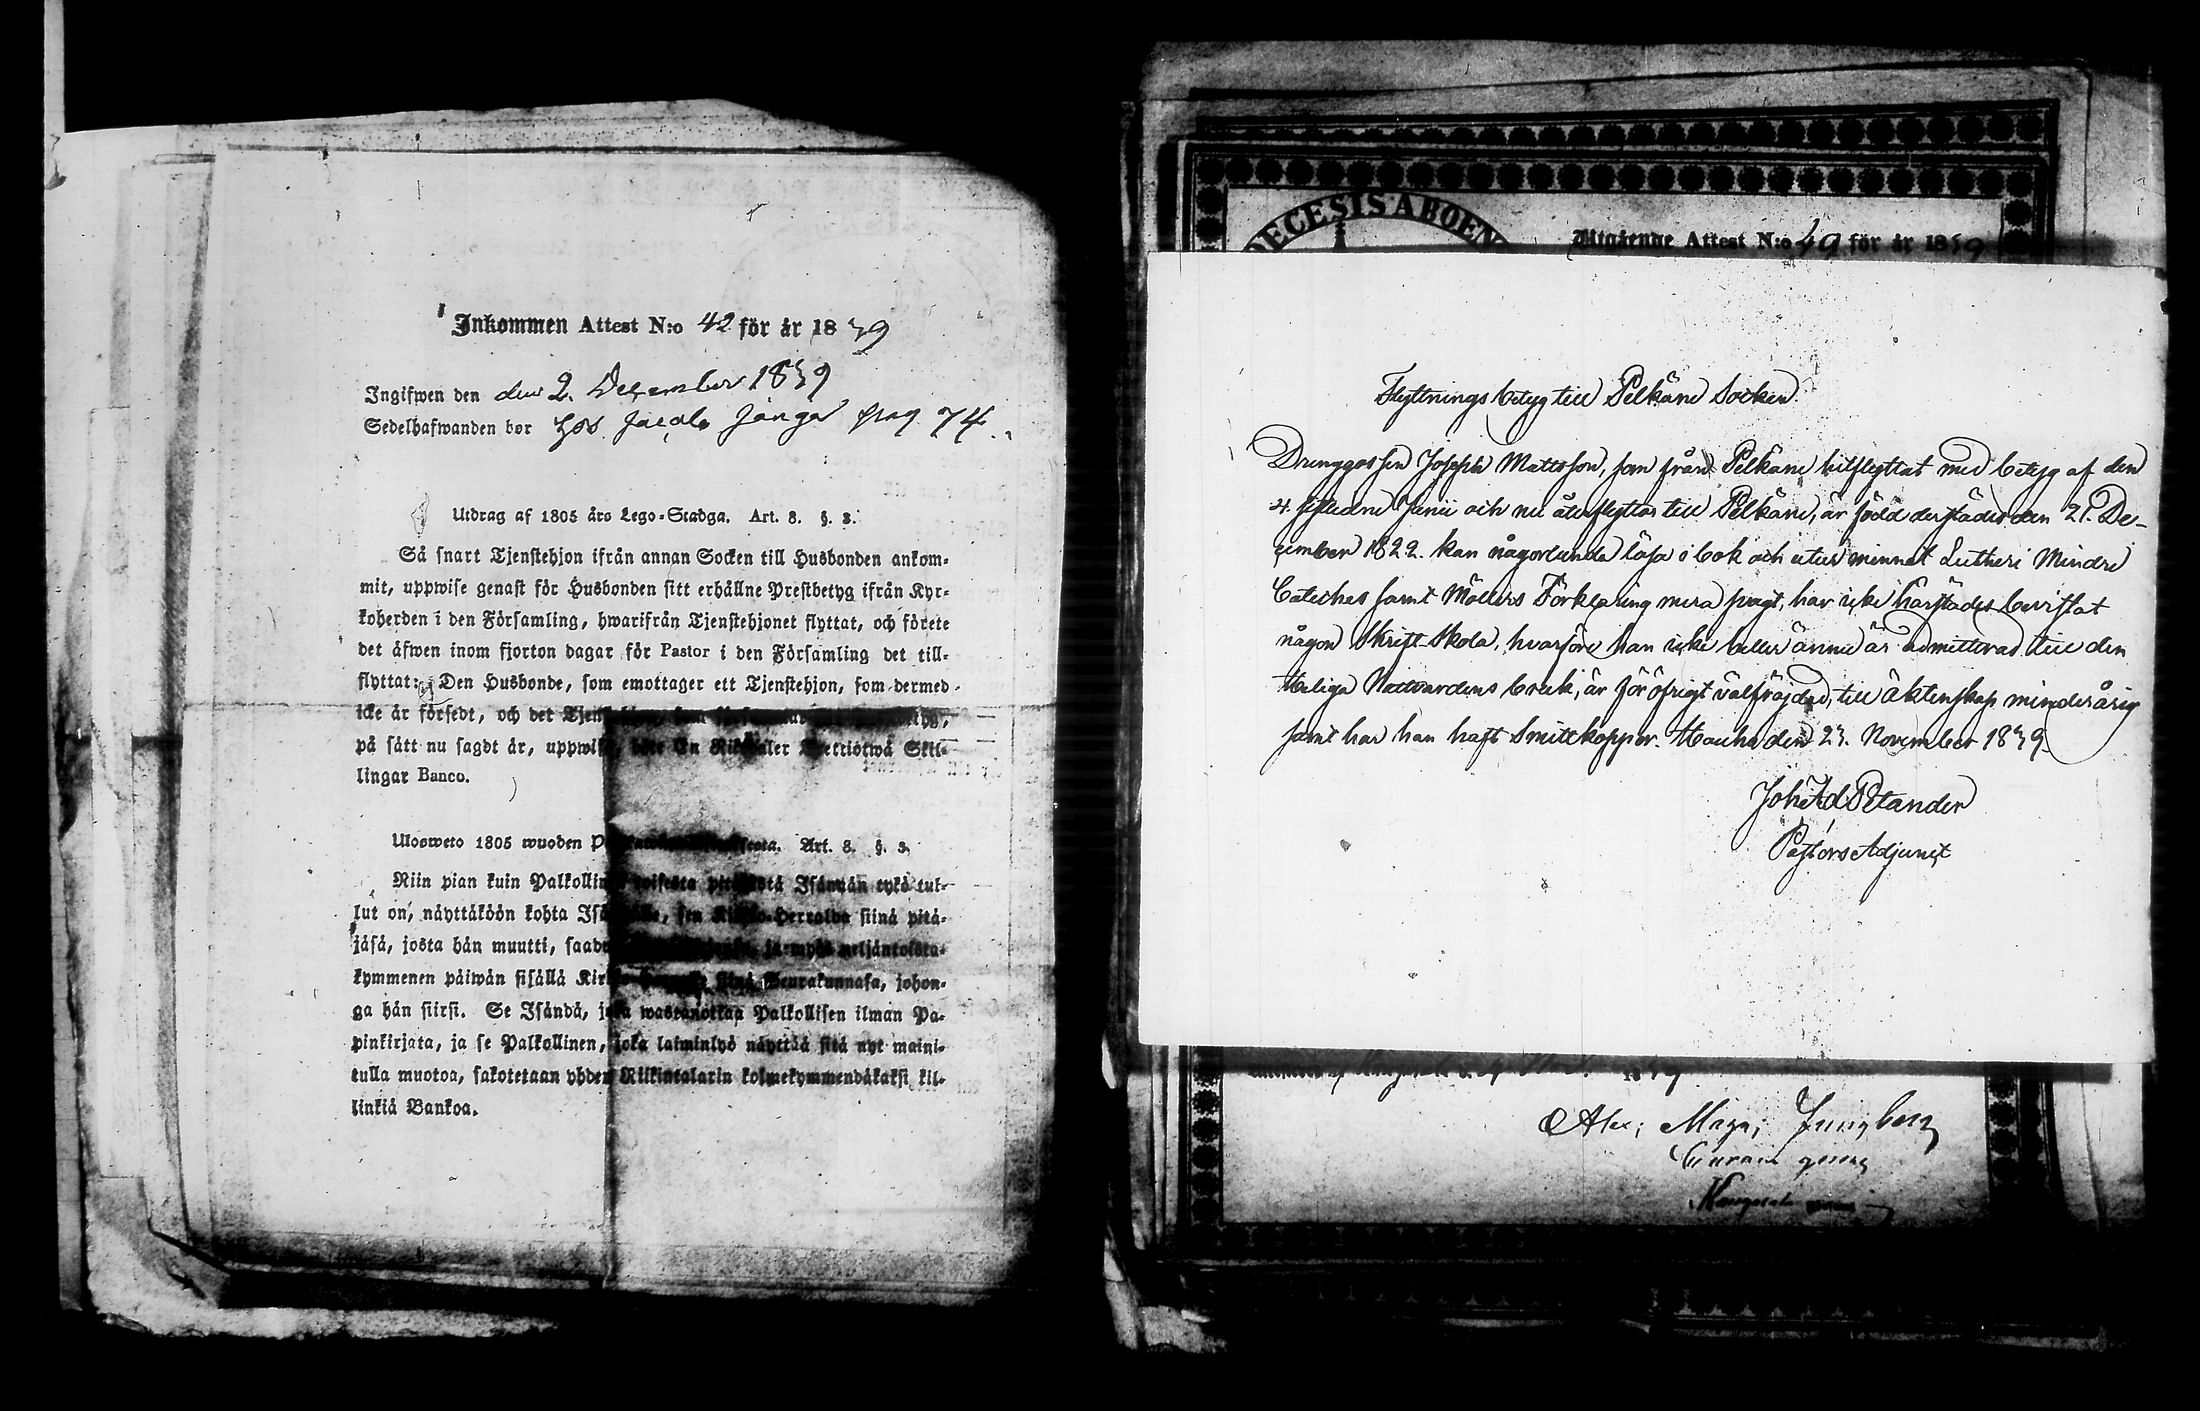 Inkommen Attest N:o 42 för år 1839
Ingifwen den den 2. December 1839
Sedelhafwanden bor hos Jacob Jänga pag 74.
Utdrag af 1805 års Lego-Stadga. Art. 8. §. 3.
Så snart Tjenstehjon ifrån annan Socken till Husbonden ankom-
mit, uppwise genast för Husbonden sitt erhållne Prestbetyg ifrån Kyr-
koherden i den Församling, hwarifrån Tjenstehjonet flyttat, och förete
det äfwen inom fjorton dagar för Pastor i den Församling det till-
flyttat: Den Husbonde, som emottager ett Tjenstehjon, som dermed
icke är försedt, och det
på sätt nu sagdt är, böte En Riksdaler Trettiotwå Skil-
lingar Banco.
Ulosweto 1805 wuoden Art. 8. §. 3.
Niin pian kuin Palkollinen toisesta pitäjästä Isännän tykö tul-
lut on, näyttäköön kohta Isännälle, sen Kirkko-Herralda siinä pitä-
jäsä, josta hän muutti, ja myös neljäntoista-
kymmenen päiwän sisällä siinä Seurakunnasa, johon-
ga hän siirsi. Se Isändä, joka wastanottaa Palkollisen ilman Pa-
pinkirjata, ja se Palkollinen, joka laiminlyö näyttää sitä nyt maini-
tulla muotoa, sakotetaan yhden Riikintalarin kolmekymmendäkaksi kil-
linkiä Bankoa.
DECESIS ABOEN
Utgående Attest N:o 49 för år 1839
Flyttnings betyg till Pelkäne Socken.
Drenggossen Joseph Mattsson, som från Pelkäne hitflyttat med betyg af den
4 sistledne Junii och nu återflyttar till Pelkäne, är född derstädes den 21. De-
cember 1822. kan någorlunda läsa i bok och utur minnet Lutheri Mindre
Cateches samt Möllers Förklaring mera svagt, har icke härstädes bevistat
någon Skrift-Skola, hvarföre han icke heller ännu är admitterad till den
Heliga Nattvardens bruk, är för öfrigt välfrejdad, till äktenskap minderårig
samt har han haft Smittkoppor. Hauho den 23. November 1839.
Joh: Ad Petander
Pastors Adjunct
1839
Alex: Magn: Ljungberg